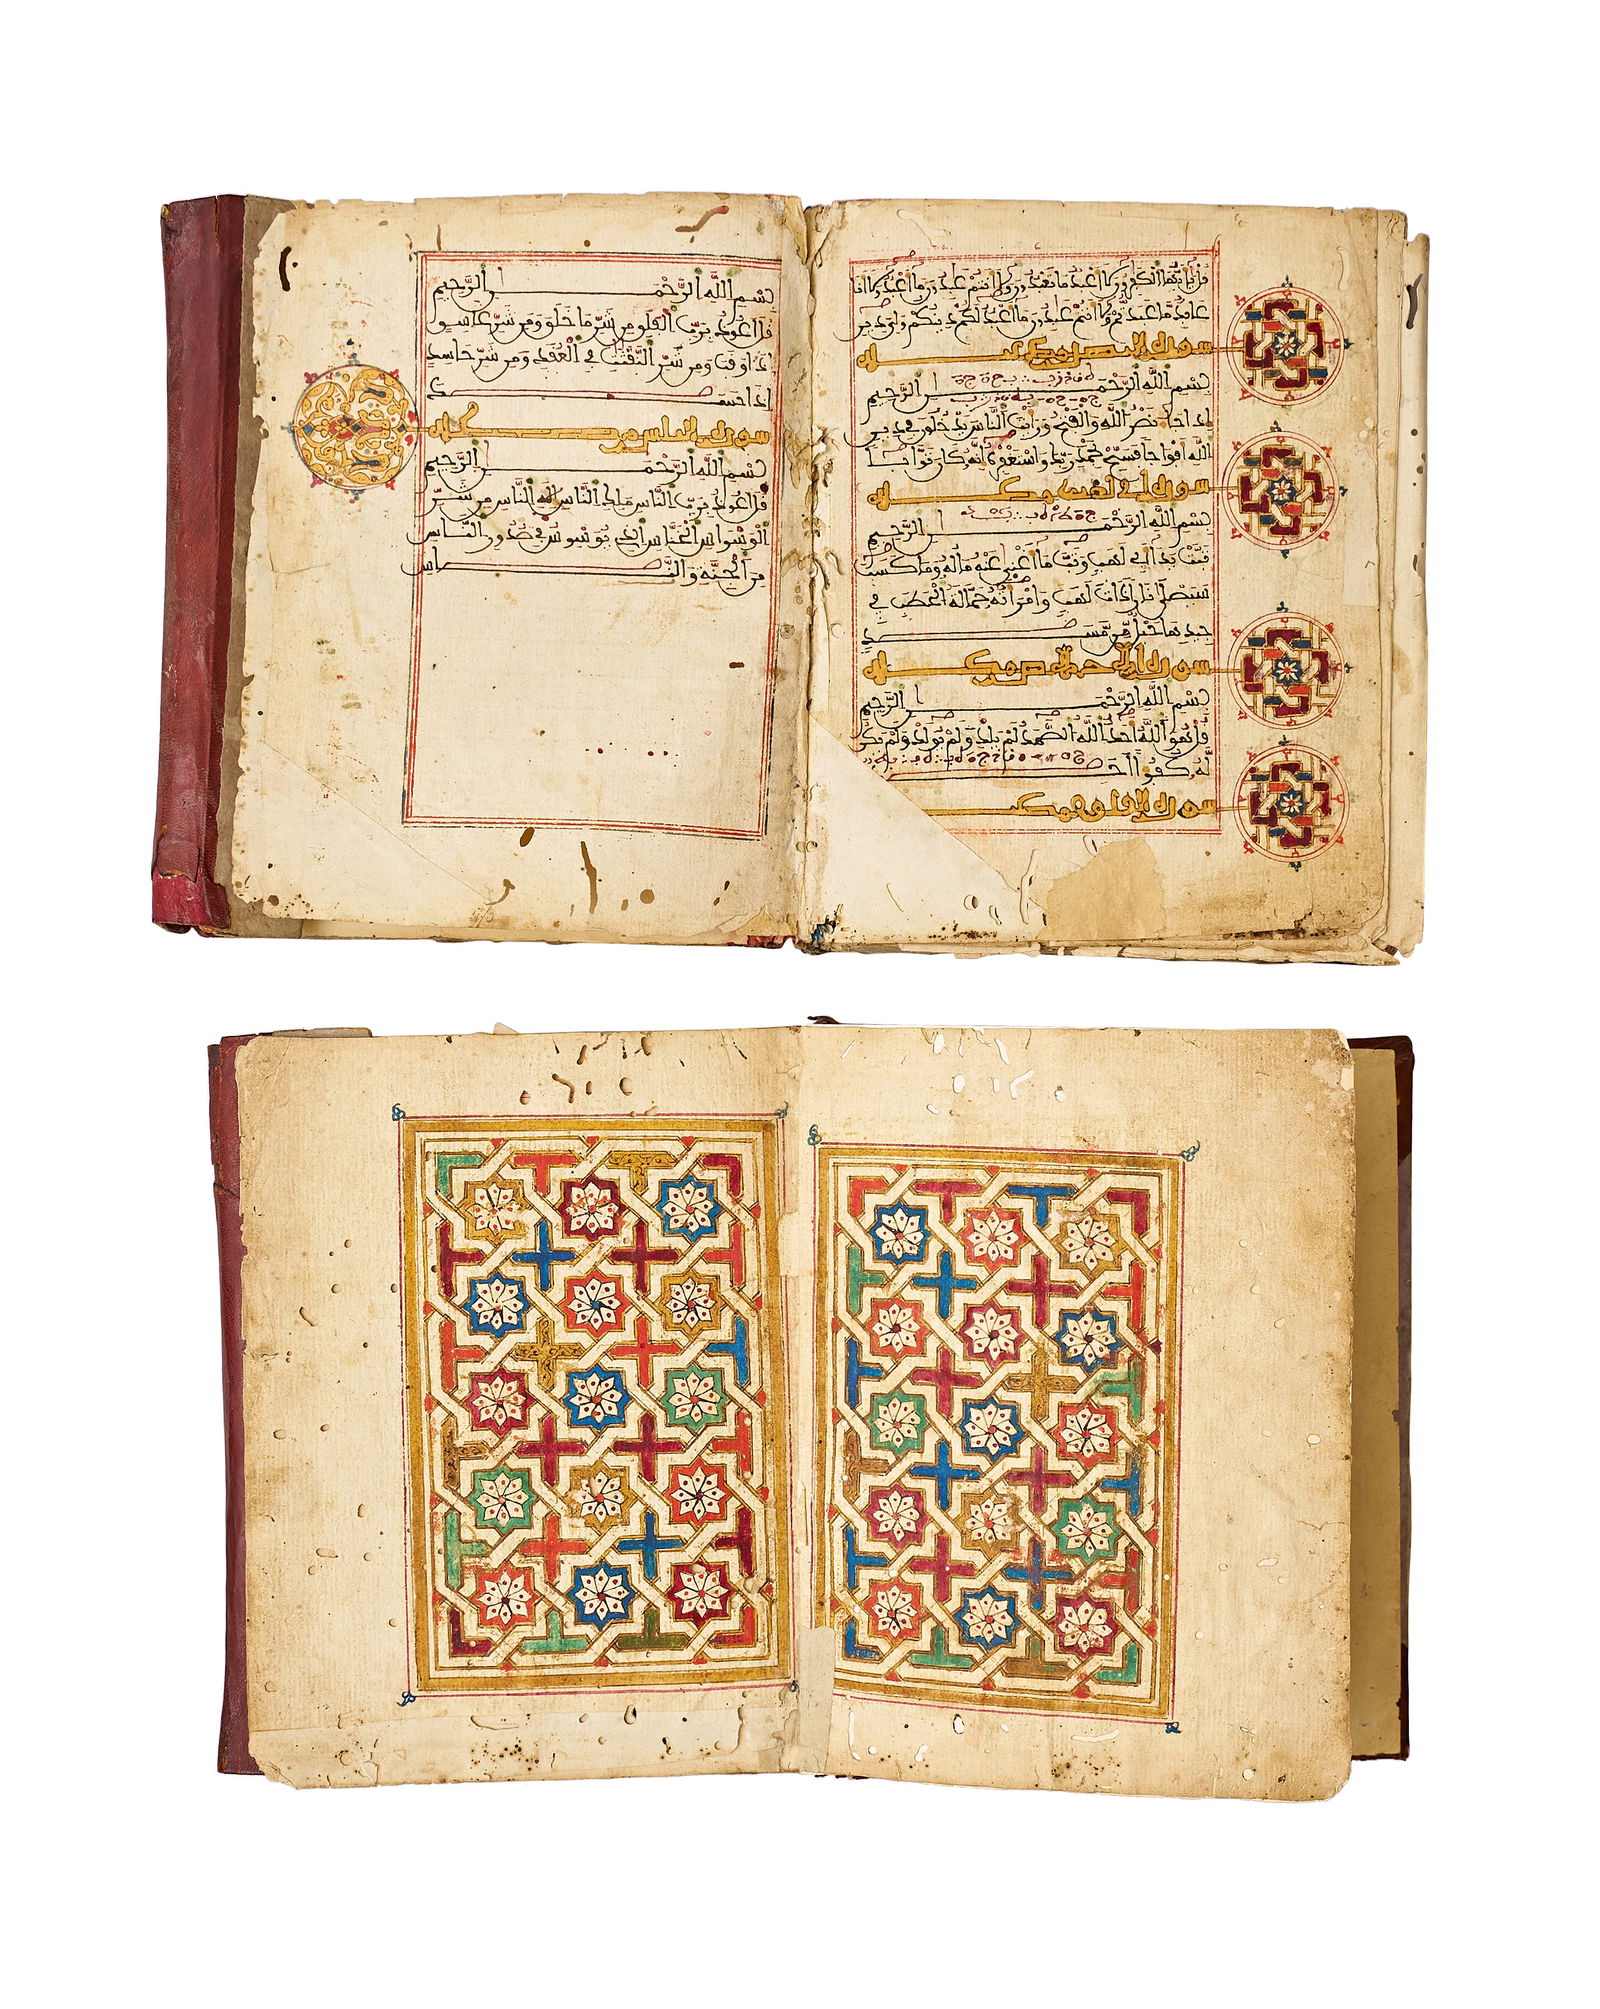 قل يا أيها الكفرون لا أعبد ما تعبدون ولا أنتم عبدون ما أعبد ولا أنا
عابد ما عبدتم ولا أنتم عبدون ما أعبد لكم دينكم ولي دين
سورة النصر
بسم الله الرحمن الرحيم
إذا جاء نصر الله والفتح ورأيت الناس يدخلون في دين
الله أفواجا فسبح بحمد ربك واستغفره إنه كان توابا
سورة أبي لهب مكية
بسم الله الرحمن الرحيم
تبت يدا أبي لهب وتب ما أغنى عنه ماله وما كسب
سيصلى نارا ذات لهب وامرأته حمالة الحطب في
جيدها حبل من مسد
سورة مكية
بسم الله الرحمن الرحيم
قل هو الله أحد الله الصمد لم يلد ولم يولد ولم يكن
له كفؤا أحد
سورة الفلق
بسم الله الرحمن الرحيم
قل أعوذ برب الفلق من شر ما خلق ومن شر غاسق
إذا وقب ومن شر النفثت في العقد ومن شر حاسد
إذا حسد
سورة الناس
بسم الله الرحمن الرحيم
قل أعوذ برب الناس ملك الناس إله الناس من شر
الوسواس الخناس الذي يوسوس في صدور الناس
من الجنة والناس